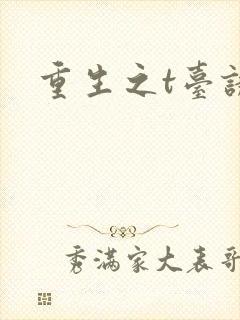 重生之t臺
秀滿家大表哥